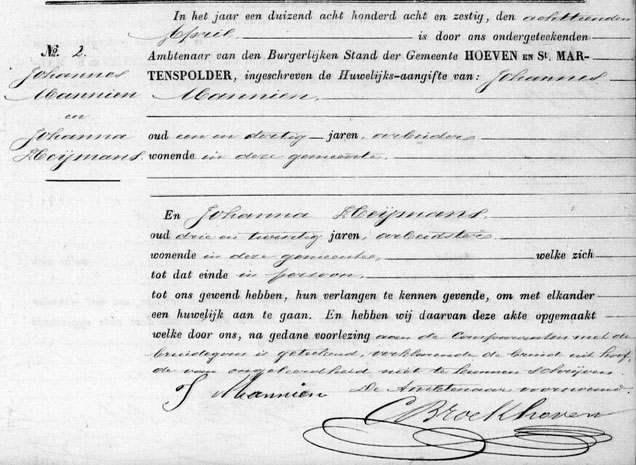 In het jaar een duizend acht honderd acht en zestig, den achttienden
April is door ons ondergeteekenden
Ambtenaar van den Burgerlijken Stand der Gemeente HOEVEN EN St. MAR-
TENSPOLDER, ingeschreven de Huwelijks-aangifte van: Johannes
Mannien.
oud een en dertig jaren, arbeider
wonende in deze gemeente.
No. 2.
Johannes
Mannien
en
Johanna
Heijmans.
En Johanna Heijmans.
oud drie en twintig jaren, arbeidster
wonende in deze gemeente, welke zich
tot dat einde in persoon
tot ons gewend hebben, hun verlangen te kennen gevende, om met elkander
een huwelijk aan te gaan. En hebben wij daarvan deze akte opgemaakt
welke door ons, na gedane voorlezing aan de Comparanten met de
bruidegom is geteekend, verklarende de bruid uit hoof-
de van ongeleerdheid niet te kunnen schrijven
De Ambtenaar voornoemd.
J Mannien
C Broekhoven